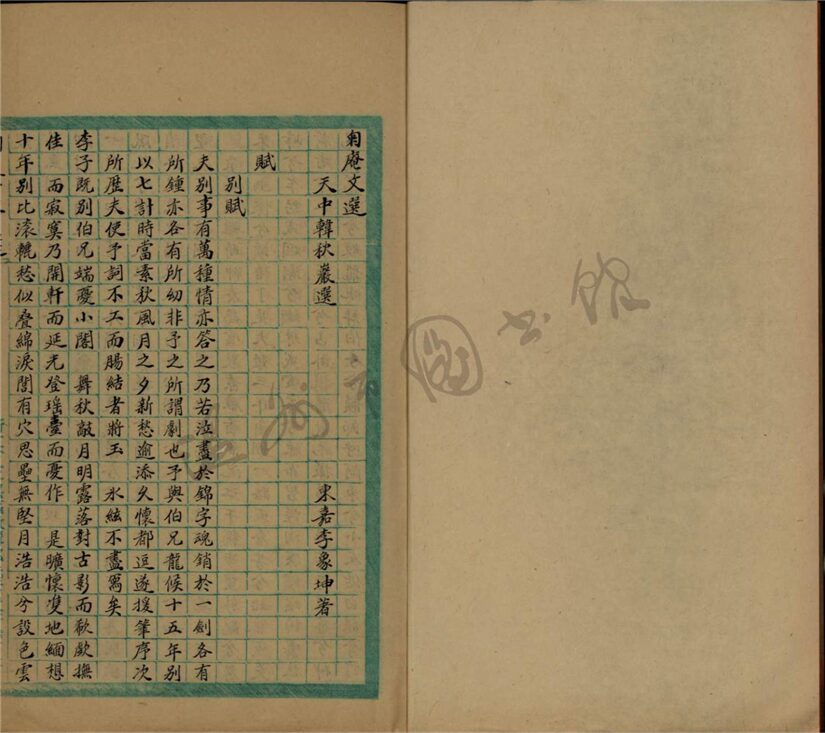 匊庵文選
天中韓秋巖選 東嘉李象坤著
賦
別賦
夫別事有萬種情亦答之乃若泣盡於錦字魂銷於一劍各有
所鍾亦各有所幼非予之所謂劇也予與伯兄龍候十五年別
以七計時當素秋風月之夕新愁逾添久懷都逗遂援筆序次
所歷夫使予詞不工而腸結者將玉 氷絃不盡寫矣
李子既別伯兄端憂小閣 舞秋敲月明露落對古影而欷歔撫
佳 而寂寞乃開軒而延光登瑶臺而憂作 是曠懷雙地緬想
十年別比滾轆愁似疊綿淚閣有穴思壘無堅月浩浩兮設色雲
温州市圖書館